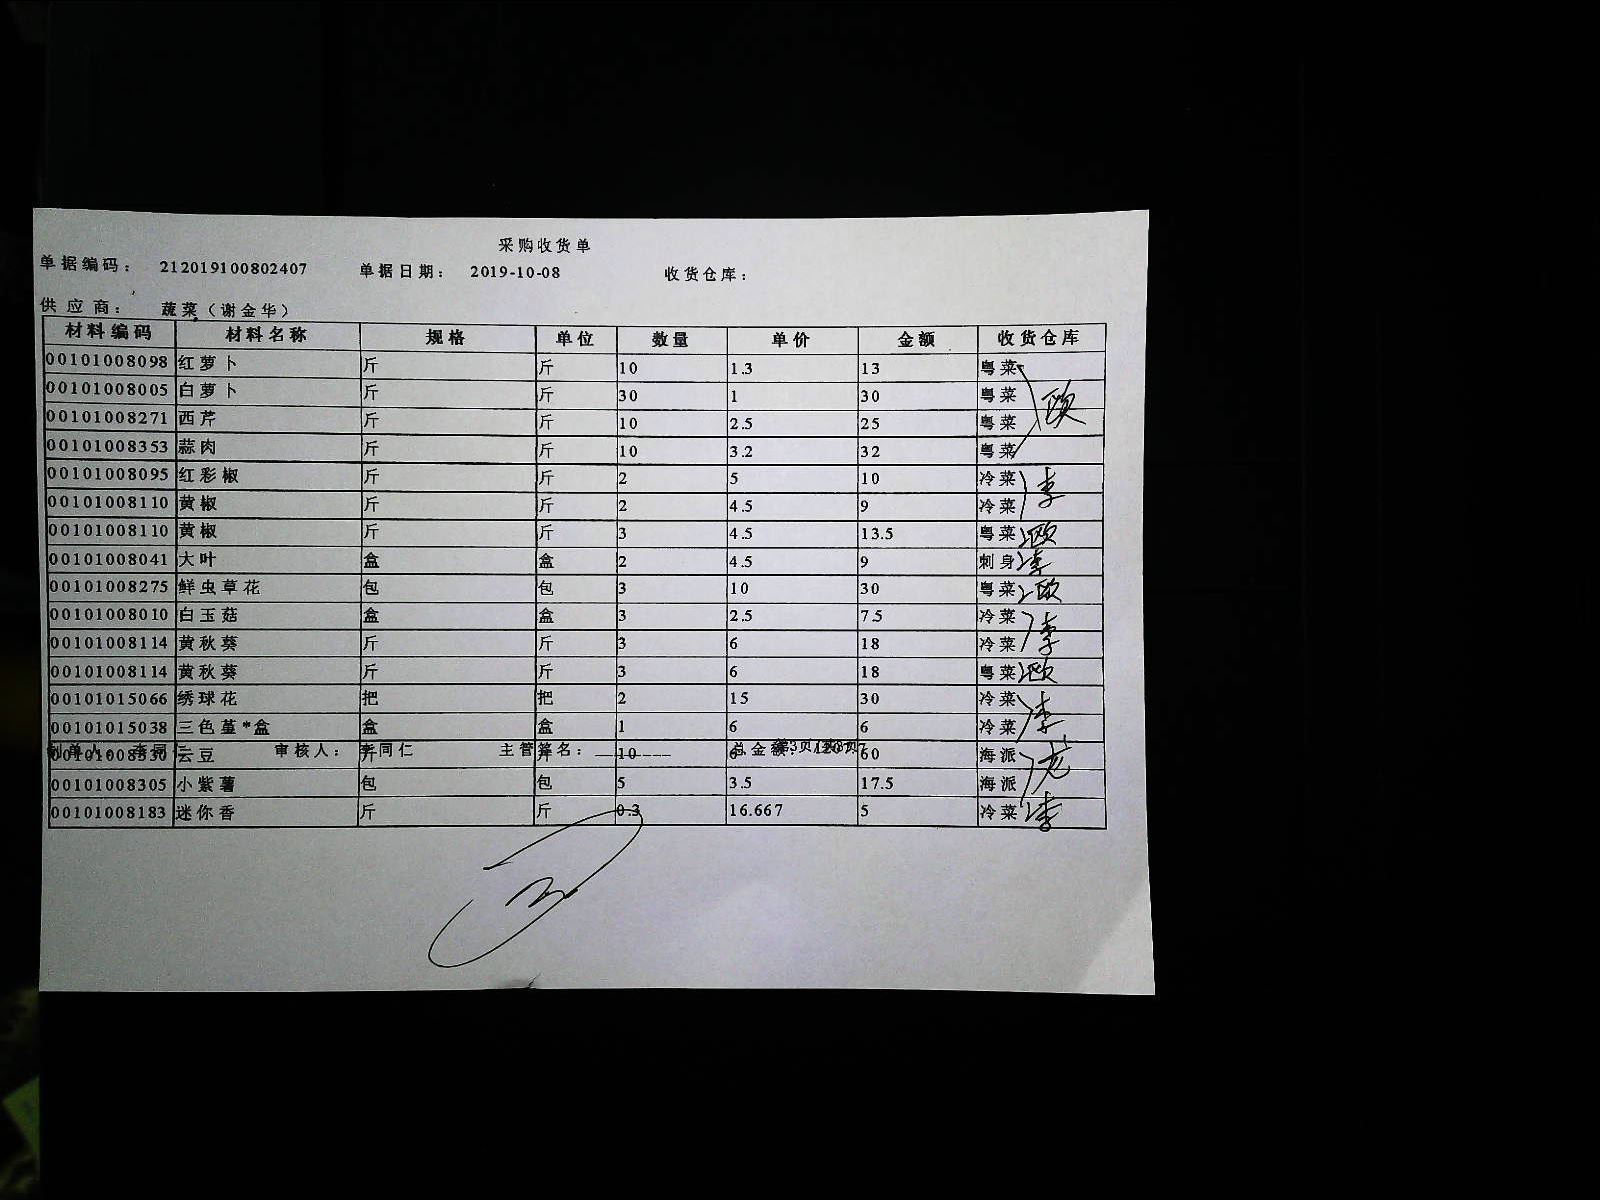 采购收货单
单据编码： 212019100802407 单据日期： 2019-10-08 收货仓库：
供应商： 蔬菜（谢金华）
材料编码 材料名称 规格 单位 数量 单价 金额 收货仓库
00101008098 红萝卜 斤 斤 10 1.3 13 粤菜
00101008005 白萝卜 斤 斤 30 1 30 粤菜 欧
00101008271 西芹 斤 斤 10 2.5 25 粤菜
00101008353 蒜肉 斤 斤 10 3.2 32 粤菜
00101008095 红彩椒 斤 斤 2 5 10 冷菜 李
00101008110 黄椒 斤 斤 2 4.5 9 冷菜
00101008110 黄椒 斤 斤 3 4.5 13.5 粤菜 欧
00101008041 大叶 盒 盒 2 4.5 9 刺身 李
00101008275 鲜虫草花 包 包 3 10 30 粤菜 欧
00101008010 白玉菇 盒 盒 3 2.5 7.5 冷菜 李
00101008114 黄秋葵 斤 斤 3 6 18 冷菜
00101008114 黄秋葵 斤 斤 3 6 18 粤菜 欧
00101015066 绣球花 把 把 2 15 30 冷菜 李
00101015038 三色堇*盒 盒 盒 1 6 6 冷菜
制单人： 李同仁 审核人： 李同仁 主管签名： 总金额： 第3页/共3页
00101008530 云豆 斤 斤 10 6 60 海派
00101008305 小紫薯 包 包 5 3.5 17.5 海派
00101008183 迷你香 斤 斤 0.3 16.667 5 冷菜 李